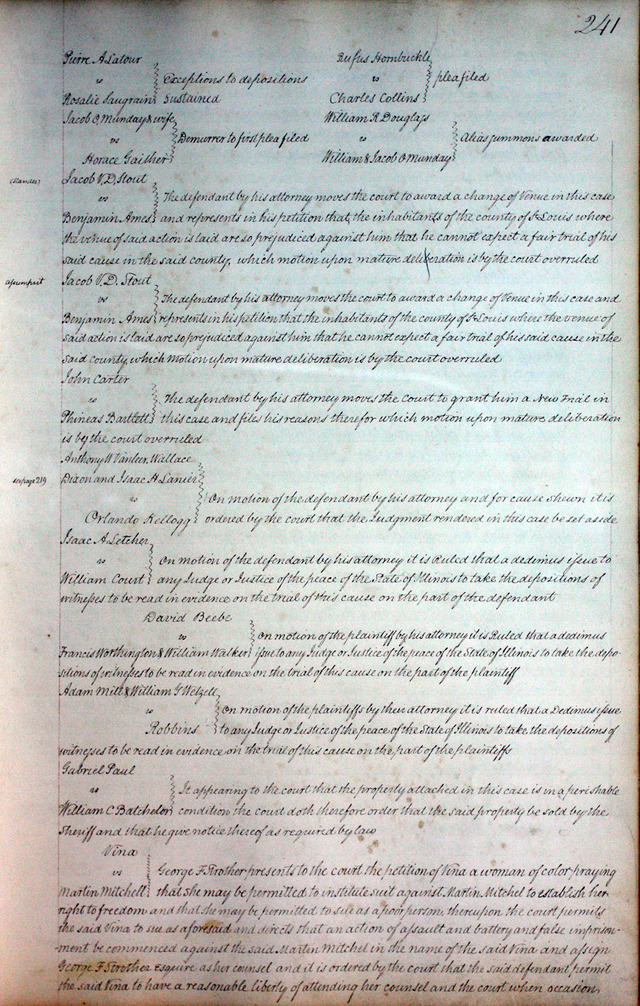 241
Pierre A. Latour
vs Exceptions to depositions
Rosalie Saugrain Sustained
Rufus Hornbuckle
vs plea filed
Charles Collins
Jacob O. Munday & wife
vs Demurrer to first plea filed
Horace Gaither
William R Douglass
vs Alias summons awarded
William & Jacob O Munday
(Slander) Jacob V. D. Stout
vs The defendant by his attorney moves the court to award a change of Venue in this case
Benjamin Ames and represents in his petition that the inhabitants of the county of St Louis where
the venue of said action is laid are so prejudiced against him that he cannot expect a fair trial of his
said cause in the said county, which motion upon mature deliberation is by the court overruled
assumpsit Jacob V. D. Stout
vs The defendant by his attorney moves the court to award a change of Venue in this case and
Benjamin Ames represents in his petition that the inhabitants of the county of St Louis where the venue of
said action is laid are so prejudiced against him that he cannot expect a fair trial of his said cause in the
said county, which motion upon mature deliberation is by the court overruled
John Carter
vs The defendant by his attorney moves the Court to grant him a New Trial in
Phineas Bartlett this case and files his reasons therefor which motion upon mature deliberation
is by the court overruled
Anthony W Vanleer, Wallace
see page 219 Dixon and Isaac H. Lanier
vs On motion of the defendant by his attorney and for cause shewn it is
Orlando Kellogg ordered by the court that the Judgment rendered in this case be set aside
Isaac A. Letcher
vs On motion of the defendant by his attorney it is Ruled that a dedimus issue to
William Court any Judge or Justice of the peace of the State of Illinois to take the depositions of
witnesses to be read in evidence on the trial of this cause on the part of the defendant
David Beebe
vs On motion of the plaintiff by his attorney it is Ruled that a dedimus
Francis Worthington & William Walker issue to any Judge or Justice of the peace of the State of Illinois to take the depo-
sitions of witnesses to be read in evidence on the trial of this cause on the part of the plaintiff
Adam Mill & William G
vs On motion of the plaintiffs by their attorney it is ruled that a Dedimus issue
Robbins to any Judge or Justice of the peace of the State of Illinois to take the depositions of
witnesses to be read in evidence on the trial of this cause on the part of the plaintiffs
Gabriel Paul
vs It appearing to the court that the property attached in this case is in a perishable
William C. Batchelor condition the court doth therefore order that the said property be sold by the
Sheriff and that he give notice thereof as required by law
Vina
vs George F. Strother presents to the court the petition of Vina a woman of color praying
Martin Mitchell that she may be permitted to institute suit against Martin Mitchel to establish her
right to freedom and that she may be permitted to sue as a poor person, thereupon the court permits
the said Vina to sue as aforesaid and directs that an action of assault and battery and false imprison-
ment be commenced against the said Martin Mitchel in the name of the said Vina and assign
George F. Strother Esquire as her counsel and it is ordered by the court that the said defendant, permit
the said Vina to have a reasonable liberty of attending her counsel and the court when occasion